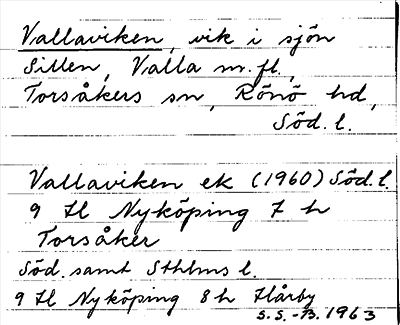 Vallaviken, vik i sjön
Sillen, Valla m.fl.,
Torsåkers sn, Rönö hd,
Söd. l.
Vallaviken ek (1960) Söd. l.
9 H Nyköping 7 h
Torsåker
Söd. samt Sthlms l.
9 H Nyköping 8 h Hårby
S.S.-B. 1963